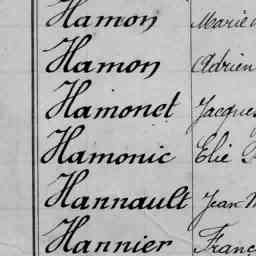 Hamon
Hamon Adrien
Hamonet Jacques
Hamonic Elie
Hannault Jean
Hannier